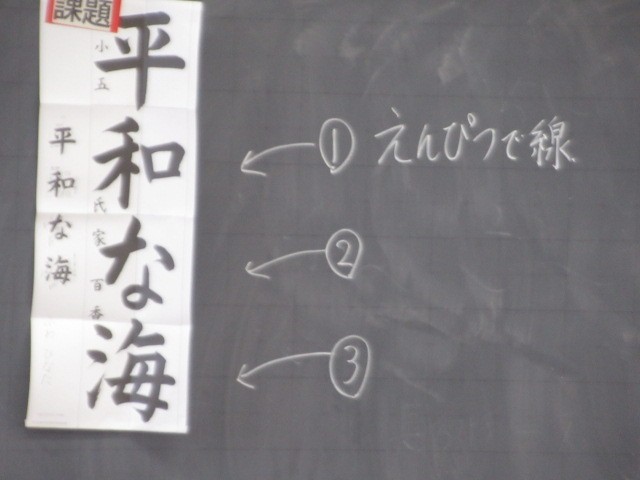 課題
平和な海
小五
氏家百香
平和な海
① えんぴつで線
②
③